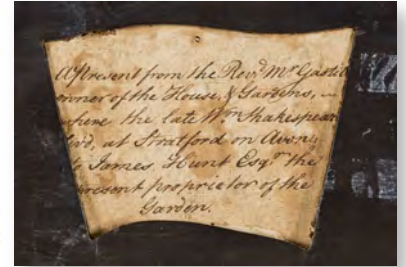 A Present from the Revd. Mr Gastil
onner of the House, & Gardens, —
where the late Wm Shakespear
livd, at Stratford on Avon,
to James Hunt Esqr. the
present proprietor of the
Garden.